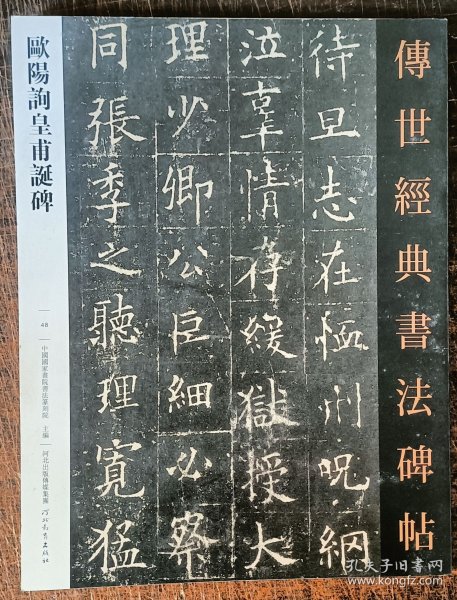 傳世經典書法碑帖
待旦志在恤刑呪網
泣辜情存緩獄授大
理少卿公巨細必察
同張季之聽理寬猛
歐陽詢皇甫誕碑
48
中國國家畫院書法篆刻院 主編
河北出版傳媒集團 河北教育出版社
孔夫子旧书网
www.kongfz.com